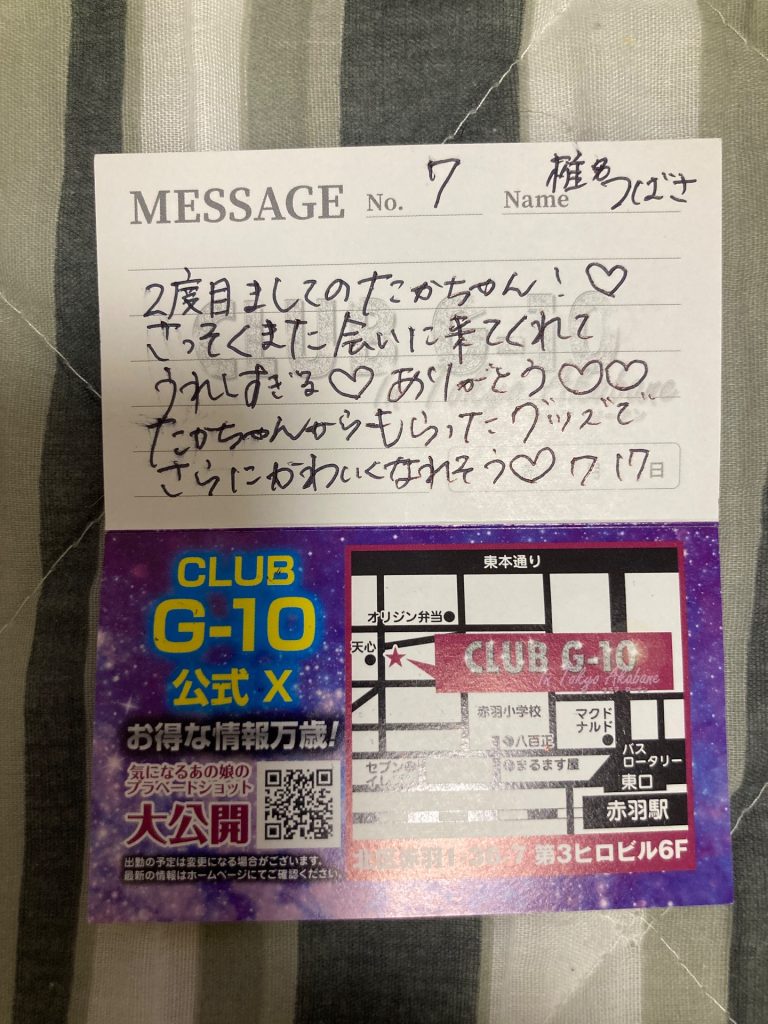 MESSAGE No. 7 Name 椎名つばさ
2度目ましてのたかちゃん!♡
さっそくまた会いに来てくれて
うれしすぎる♡ ありがとう♡♡
たかちゃんからもらったグッズで
さらにかわいくなれそう♡ 7 17日
CLUB
G-10
公式 X
お得な情報万歳!
気になるあの娘の
プラベードショット
大公開
出勤の予定は変更になる場合がございます。
最新の情報はホームページにてご確認ください。
東本通り
オリジン弁当
天心
CLUB G-10
In Tokyo Akabane
赤羽小学校
マクド
ナルド
八百正
バス
ロータリー
セブン
まるます屋
東口
赤羽駅
赤羽1 第3ヒロビル6F